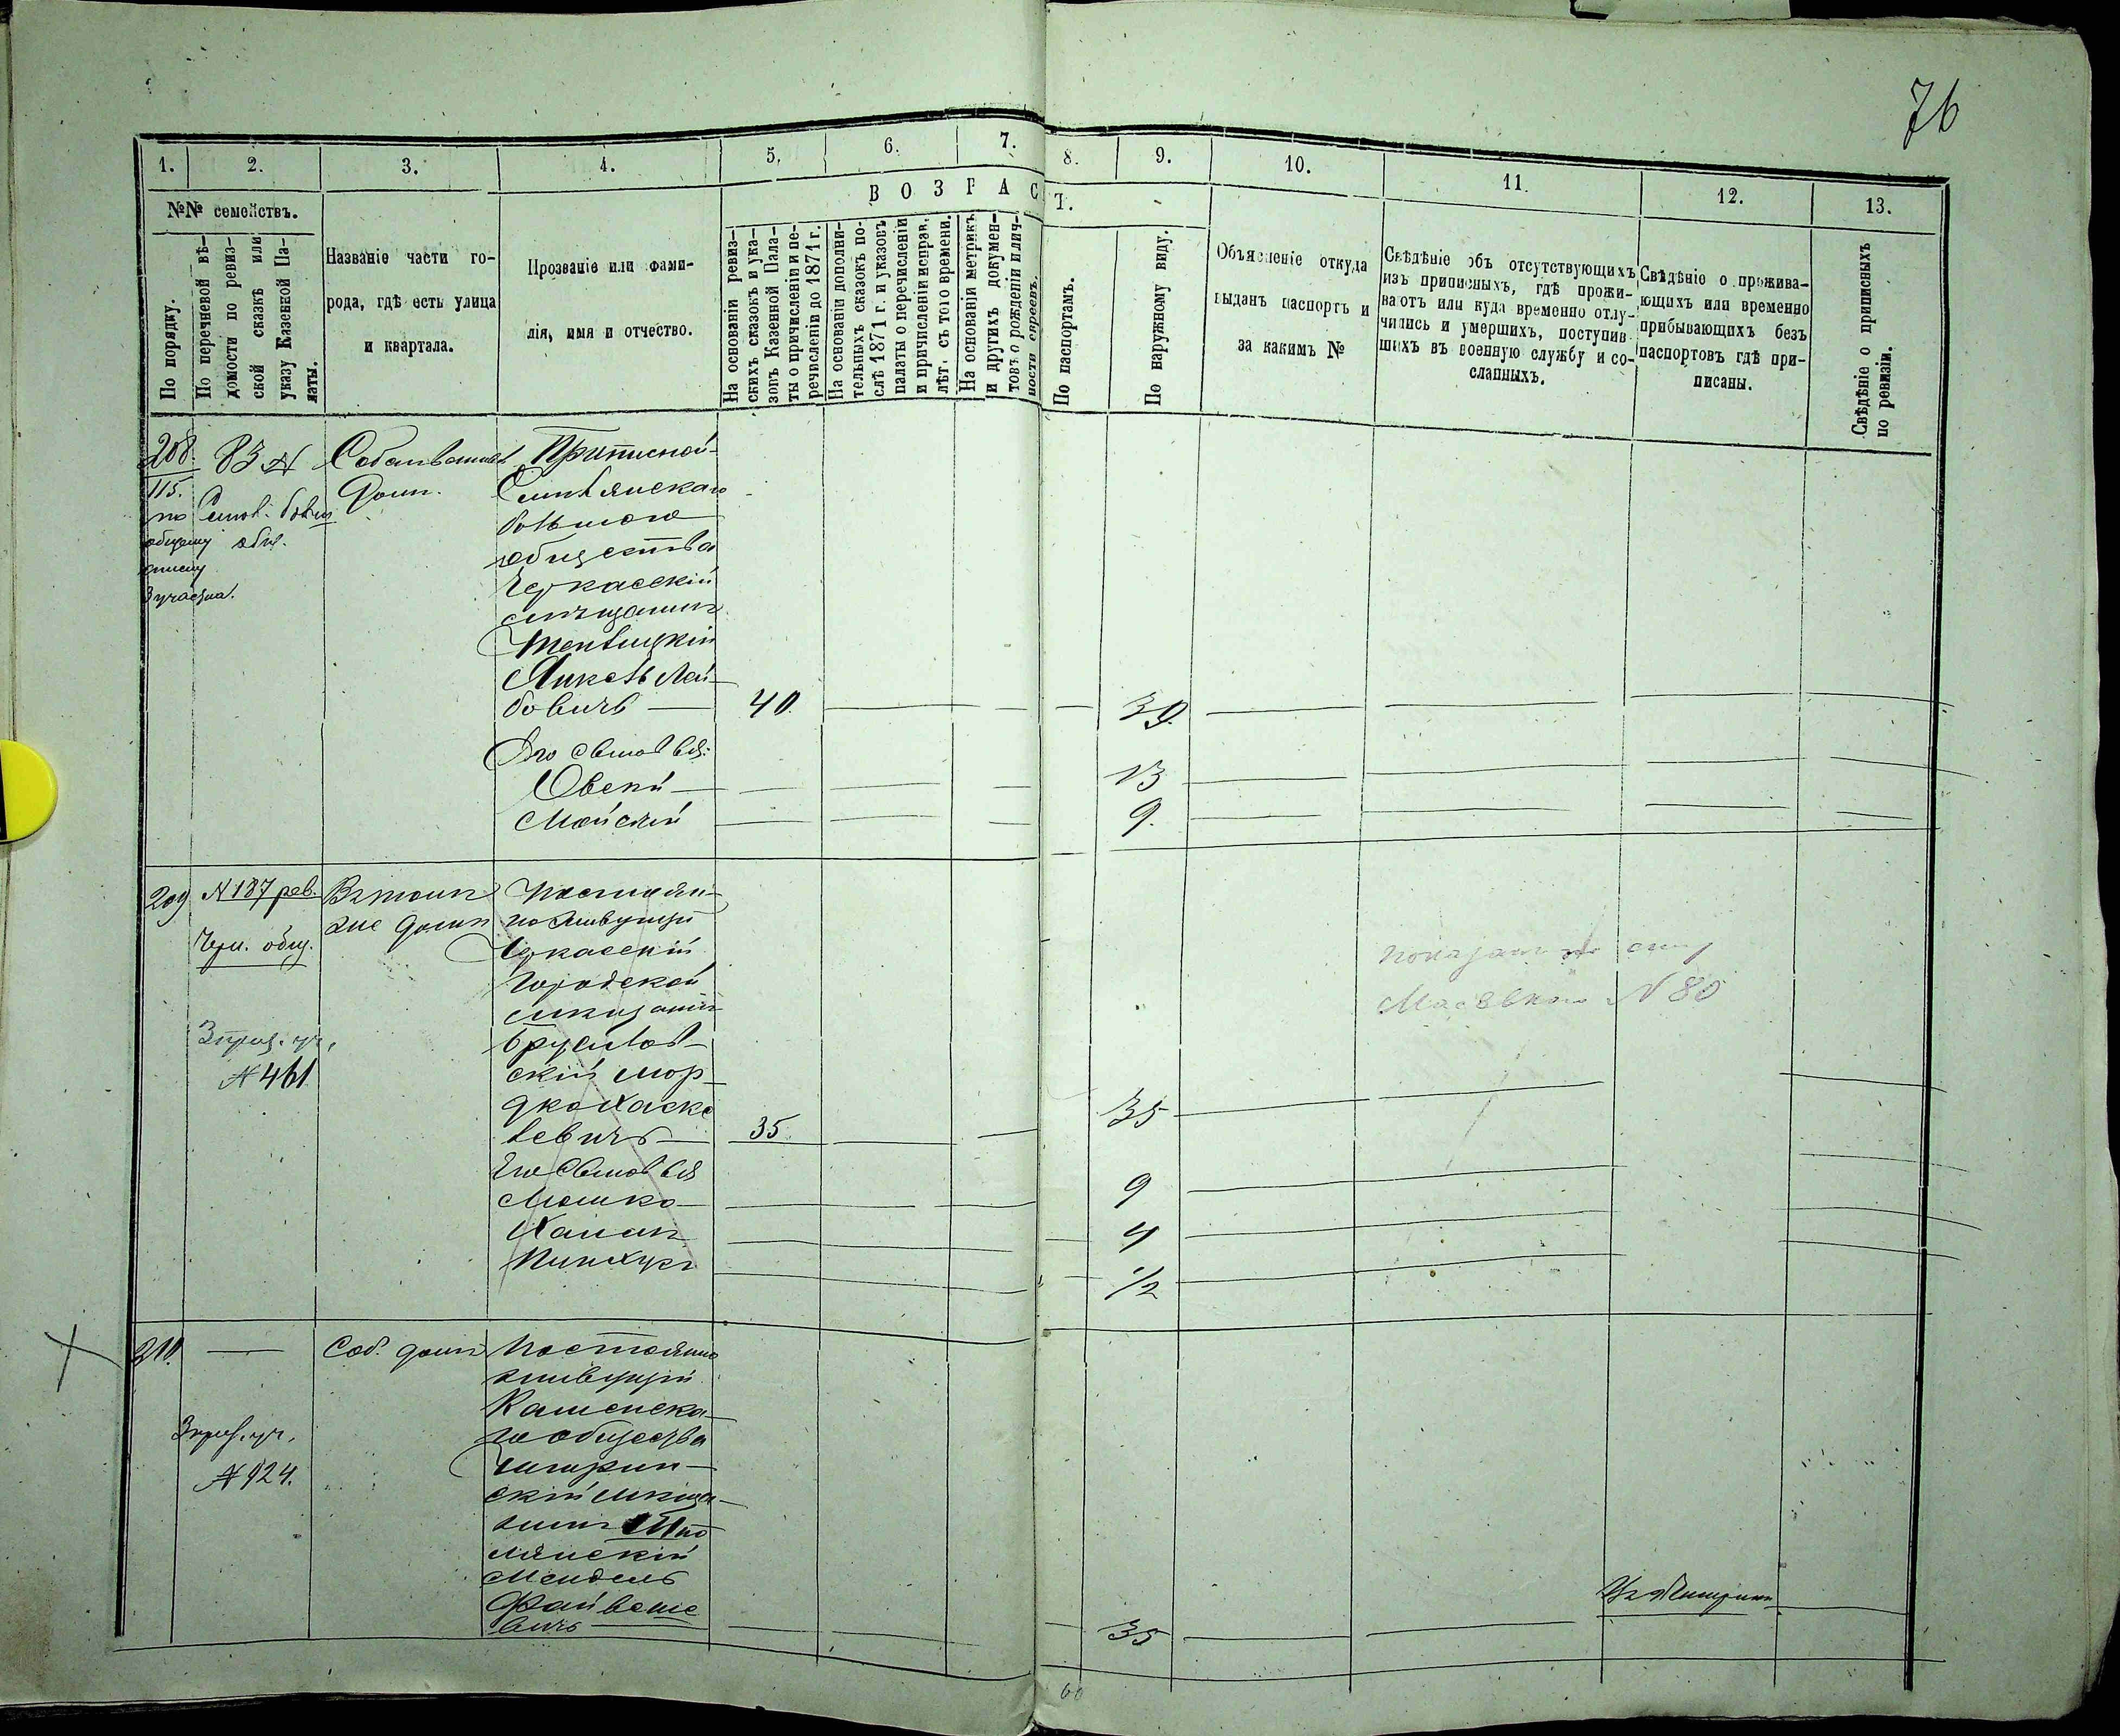 76
1. 2. 3. 4. 5. 6. 7. 8. 9. 10. 11. 12. 13.
№№ семействъ.
По порядку.
По перечневой вѣ-
домости по ревиз-
ской сказкѣ или
указу Казенной Па-
латы.
Названіе части го-
рода, гдѣ есть улица
и квартала.
Прозваніе или фами-
лія, имя и отчество.
ВОЗРАСТ.
На основаніи ревиз-
скихъ сказокъ и ука-
зовъ Казенной Пала-
ты о причисленіи и пе-
речисленіи до 1871 г.
На основаніи дополни-
тельныхъ сказокъ по-
слѣ 1871 г. и указовъ
палаты о перечисленіи
и причисленіи исправ.
лѣт. съ того времени.
На основаніи метрикъ
и другихъ докумен-
товъ о рожденіи и лич-
ности евреевъ.
По паспортамъ.
По наружному виду.
Объясненіе откуда
выданъ паспортъ и
за какимъ №
Свѣдѣніе объ отсутствующихъ
изъ приписныхъ, гдѣ прожи-
ваютъ или куда временно отлу-
чились и умершихъ, поступив-
шихъ въ военную службу и со-
сланныхъ.
Свѣдѣніе о прожива-
ющихъ или временно
прибывающихъ безъ
паспортовъ гдѣ при-
писаны.
Свѣдѣніе о приписныхъ
по ревизіи.
208.
115.
по
общему
списку
3 участка.
83 №
общ.
Собственный
домъ.
Приписной
Смѣлянскаго
большого
общества
Черкасскій
мѣщанинъ
Янкель Лей-
бовичъ — 40 39.
Его сыновья:
Овсей 13
Мойсей 9.
209 № 187 рев.
Черк. общ.
3 приз. уч.
№ 461
домъ
Постоян-
но живущій
Черкасскій
городской
мѣщанинъ
Брусилов-
скій Мор-
дко Хаске-
левичъ 35. 35
Его сыновья
Мошко 9
Хаимъ 4
Пинхусъ 1/2
показан по
№ 80
210. — Соб. домъ
3 приз. уч.
№ 924.
Постоянно
живущій
Каменска-
го общества
Чигирин-
скій мѣща-
нинъ
Мендель
Файвеше-
вичъ 35
60